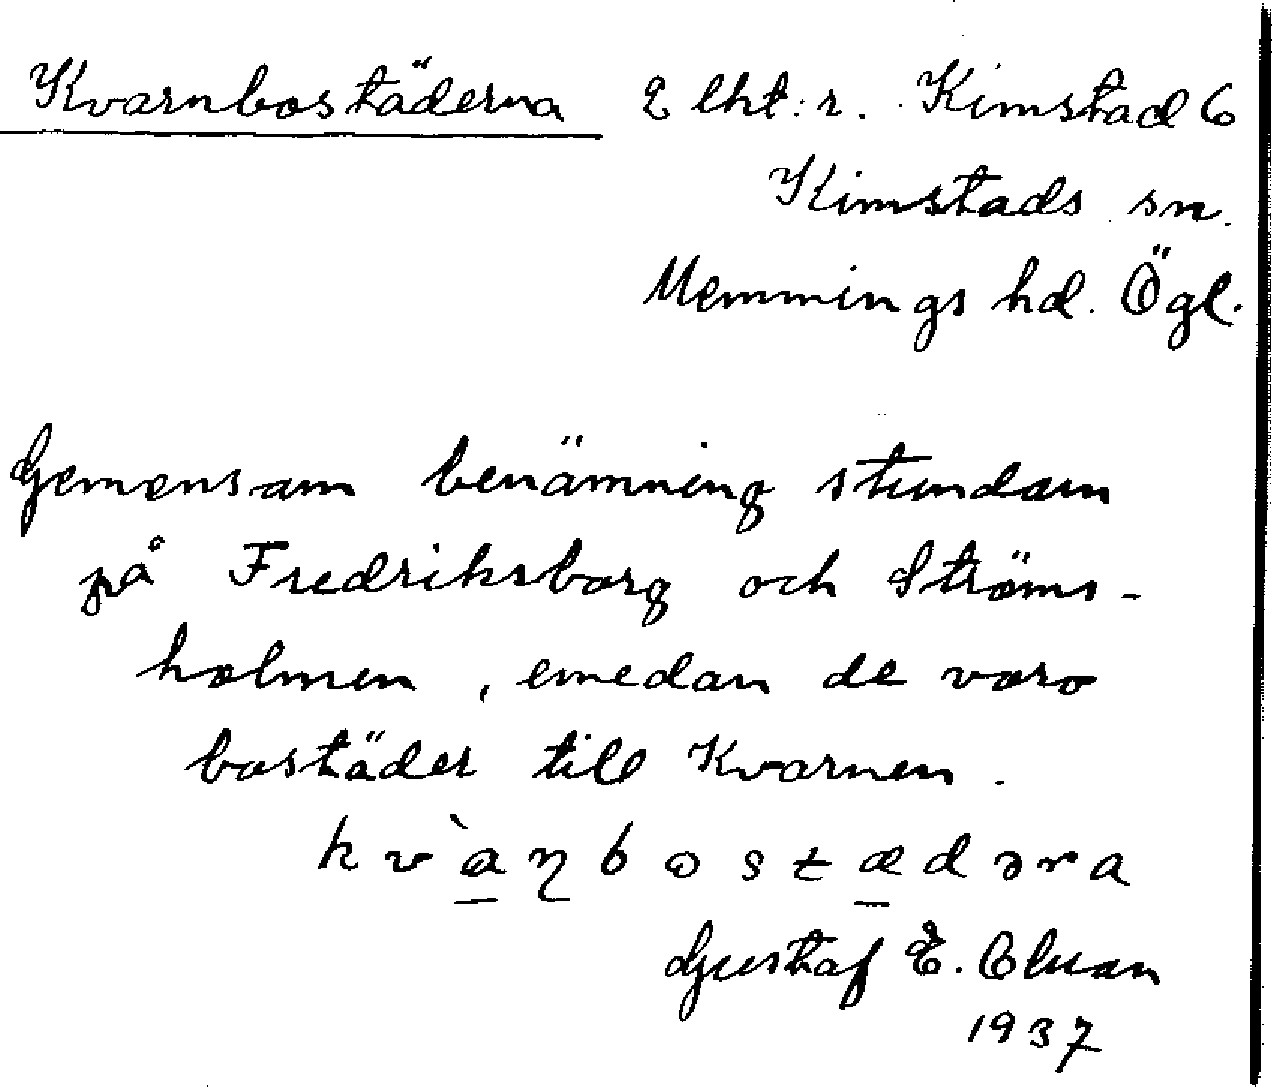 Kvarnbostäderna 2 lht:r. Kimstad 6
Kimstads sn.
Memmings hd. Ögl.
Gemensam benämning stundom
på Fredriksborg och Ströms-
holmen, emedan de voro
bostäder till Kvarnen.
kv̀a̲ɳbostæ̲dəra
Gustaf E.
1937